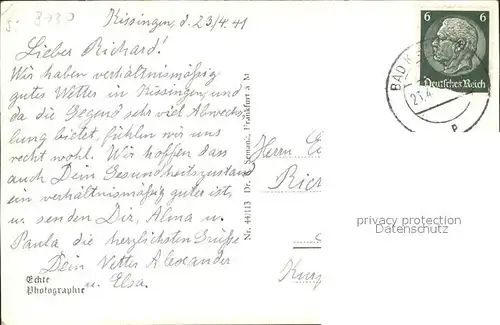 Kissingen, d. 23/4. 41
Lieber Richard!
Wir haben verhältnismäßig
gutes Wetter in Kissingen, und
da die Gegend sehr viel Abwechs-
lung bietet, fühlen wir uns
recht wohl. Wir hoffen dass
auch Dein Gesundheitszustand
ein verhältnismäßig guter ist,
u. senden Dir, Alma u.
Paula die herzlichsten Grüße
Dein Vetter Alexander
u. Elsa.
Echte
Photographie
Nr. 44/113 Dr. Semans, Frankfurt a M
6 6
Deutsches Reich
BAD K
23.4
Herrn
Rich
privacy protection
Datenschutz